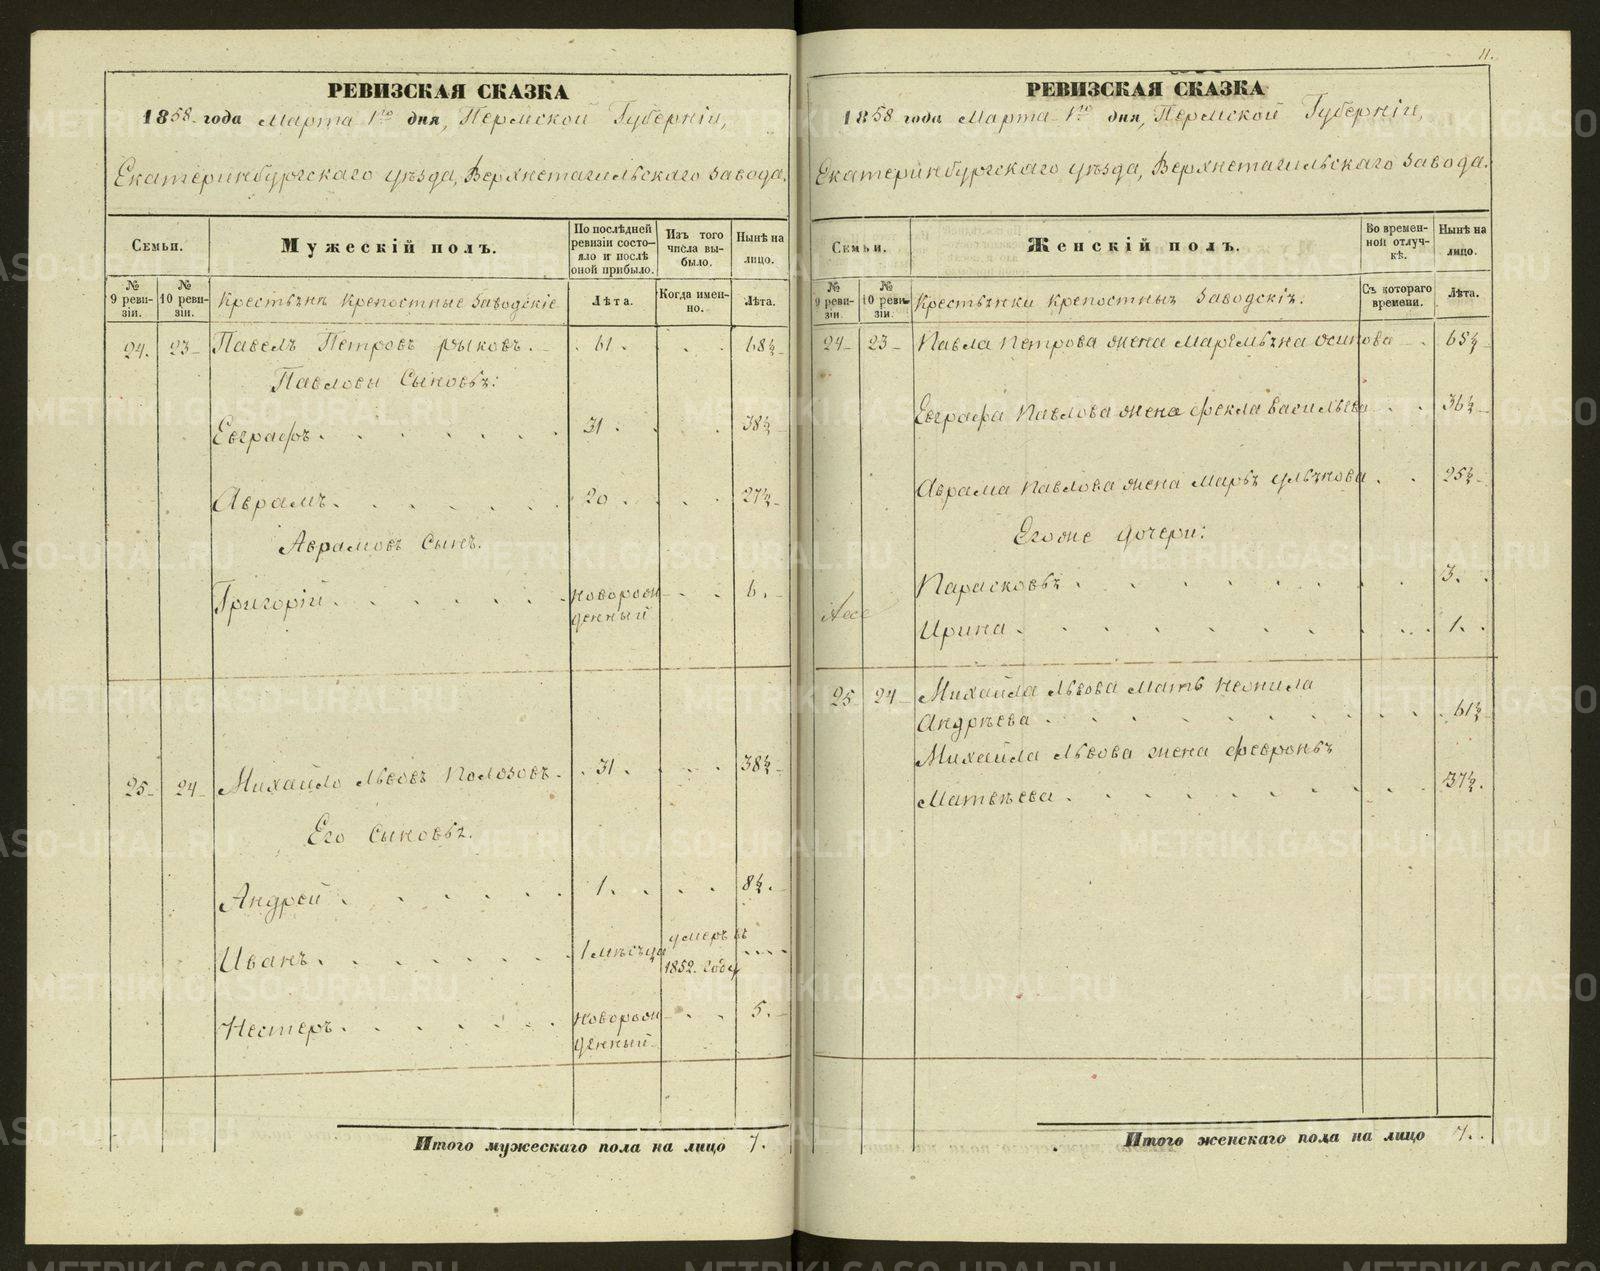 11.
РЕВИЗСКАЯ СКАЗКА
1858 года Марта 1го дня, Пермской Губерніи,
Екатеринбургскаго уѣзда, Верхнетагильскаго завода.
Семьи.
Мужескій полъ.
По послѣдней ревизіи состояло и послѣ оной прибыло.
Изъ того числа выбыло.
Нынѣ на лицо.
№ 9 ревизіи.
№ 10 ревизіи.
Крестьяне крепостные заводскіе
Лѣта.
Когда именно.
Лѣта.
24. 23 Павелъ Петровъ рыковъ. 61. 68½
Павловы Сыновья:
Евграфъ. 31. 38½
Аврамъ. 20. 27½
Аврамовъ Сынъ.
Григорій. новорожденный 6.
25 24 Михайло Львовъ Полозовъ. 31. 38½
Его Сыновья.
Андрей. 1. 8½.
Иванъ. 1 мѣсяца умеръ въ 1852. году
Нестеръ. новорожденный 5.
Итого мужескаго пола на лицо 7.
РЕВИЗСКАЯ СКАЗКА
1858 года Марта 1го дня, Пермской Губерніи,
Екатеринбургскаго уѣзда, Верхнетагильскаго завода.
Семьи.
Женскій полъ.
Во временной отлучкѣ.
Нынѣ на лицо.
№ 9 ревизіи.
№ 10 ревизіи.
Крестьянки крепостныя заводскія.
Съ котораго времени.
Лѣта.
24 23 Павла Петрова жена Маремьяна осипова 65½
Евграфа Павлова жена фекла васильева 36½
Аврама Павлова жена Марья ульянова 25½
Егоже дочери:
Парасковья 3.
Ирина. 1.
25 24 Михайла Львова Мать неонила
Андрѣева 61½
Михайла Львова жена февронья
Матвѣева. 37½.
Итого женскаго пола на лицо 7.
METRIKI.GASO-URAL.RU